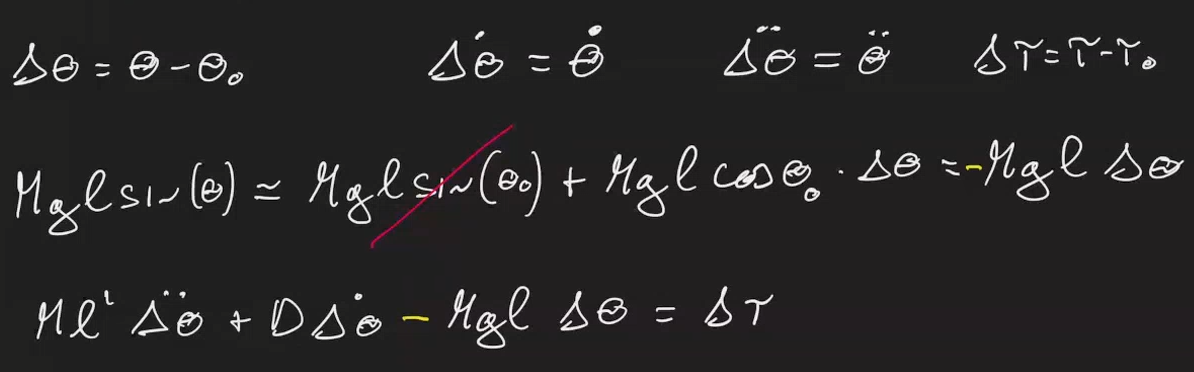 Δθ = θ - θ₀ Δθ̇ = θ̇ Δθ̈ = θ̈ Δτ = τ - τ₀
Mgl sin(θ) ≃ Mgl sin(θ₀) + Mgl cosθ₀ · Δθ = -Mgl Δθ
Ml² Δθ̈ + DΔθ̇ - Mgl Δθ = Δτ